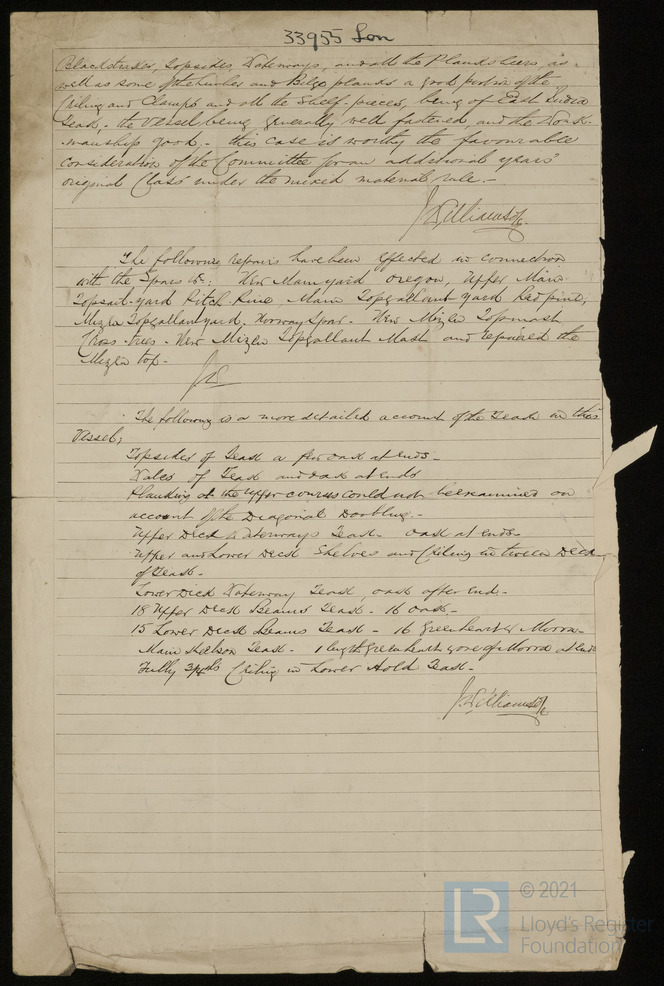 33955 Lon
Blackstrakes, Topsides, Waterways, and all the Planksheers, as
well as some of the limber and Bilge planks a good portion of the
Ceiling and Clamps and all the Shelf-pieces, being of East India
Teak. - the vessel being generally well fastened, and the Work-
manship good. - this case is worthy the favourable
consideration of the Committee for an additional years'
original Class under the mixed material rule. -
J. Williamson
The following repairs have been effected in connection
with the Spars &c; New Main yard oregon, Upper Main
Topsail-yard Pitch Pine Main Topgallant yard Red pine;
Mizen Topgallant yard. Norway Spar. New Mizen Topmast
Cross-trees - New Mizen Topgallant Mast and repaired the
Mizen top. -
The following is a more detailed account of the Teak in this
Vessel;
Topsides of Teak a few oak at ends -
Wales of Teak and oak at ends
Planking at the upper courses could not be examined on
account of the Diagonal Doubling. -
Upper Deck Waterways Teak - oak at ends -
Upper and Lower Deck Shelves and Ceiling in tween Decks
of Teak. -
Lower Deck Waterway Teak, oak after end. -
18 Upper Deck Beams Teak - 16 oak. -
15 Lower Deck Beams Teak - 16 Greenheart & Morra -
Main Keelson Teak. - 1 length Greenheart & one of Morra at end
Fully 3/4ths Ceiling in Lower Hold Teak. -
J. Williamson
LR
© 2021
Lloyd's Register
Foundation